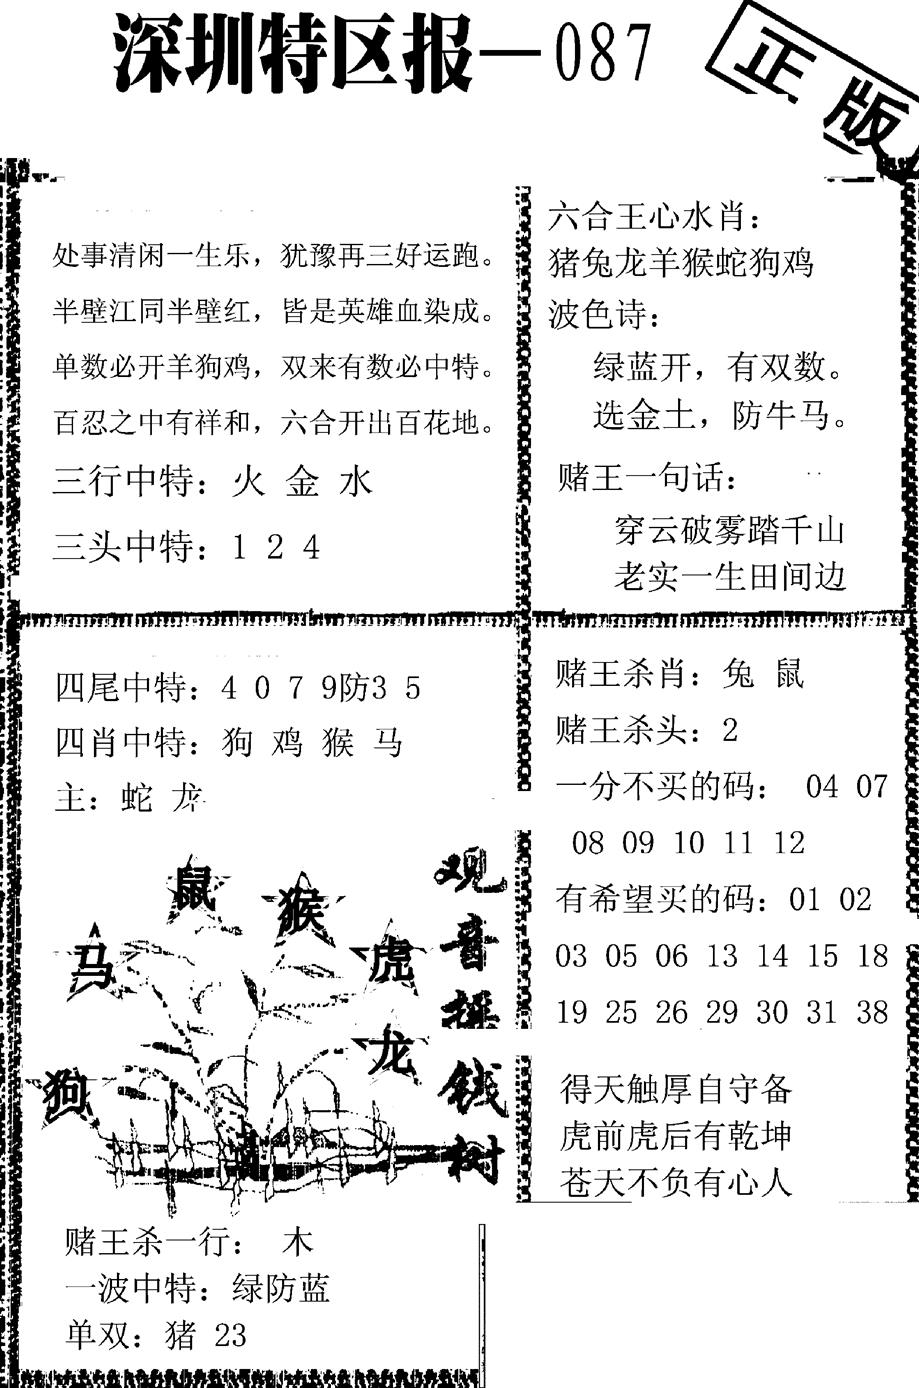 深圳特区报—087
正版
处事清闲一生乐，犹豫再三好运跑。
半壁江同半壁红，皆是英雄血染成。
单数必开羊狗鸡，双来有数必中特。
百忍之中有祥和，六合开出百花地。
三行中特：火 金 水
三头中特：1 2 4
六合王心水肖：
猪兔龙羊猴蛇狗鸡
波色诗：
绿蓝开，有双数。
选金土，防牛马。
赌王一句话：
穿云破雾踏千山
老实一生田间边
四尾中特：4 0 7 9防3 5
四肖中特：狗 鸡 猴 马
主：蛇 龙
鼠
猴
马
虎
龙
狗
观音摇钱树
赌王杀一行： 木
一波中特：绿防蓝
单双：猪 23
赌王杀肖：兔 鼠
赌王杀头：2
一分不买的码： 04 07
08 09 10 11 12
有希望买的码：01 02
03 05 06 13 14 15 18
19 25 26 29 30 31 38
得天触厚自守备
虎前虎后有乾坤
苍天不负有心人